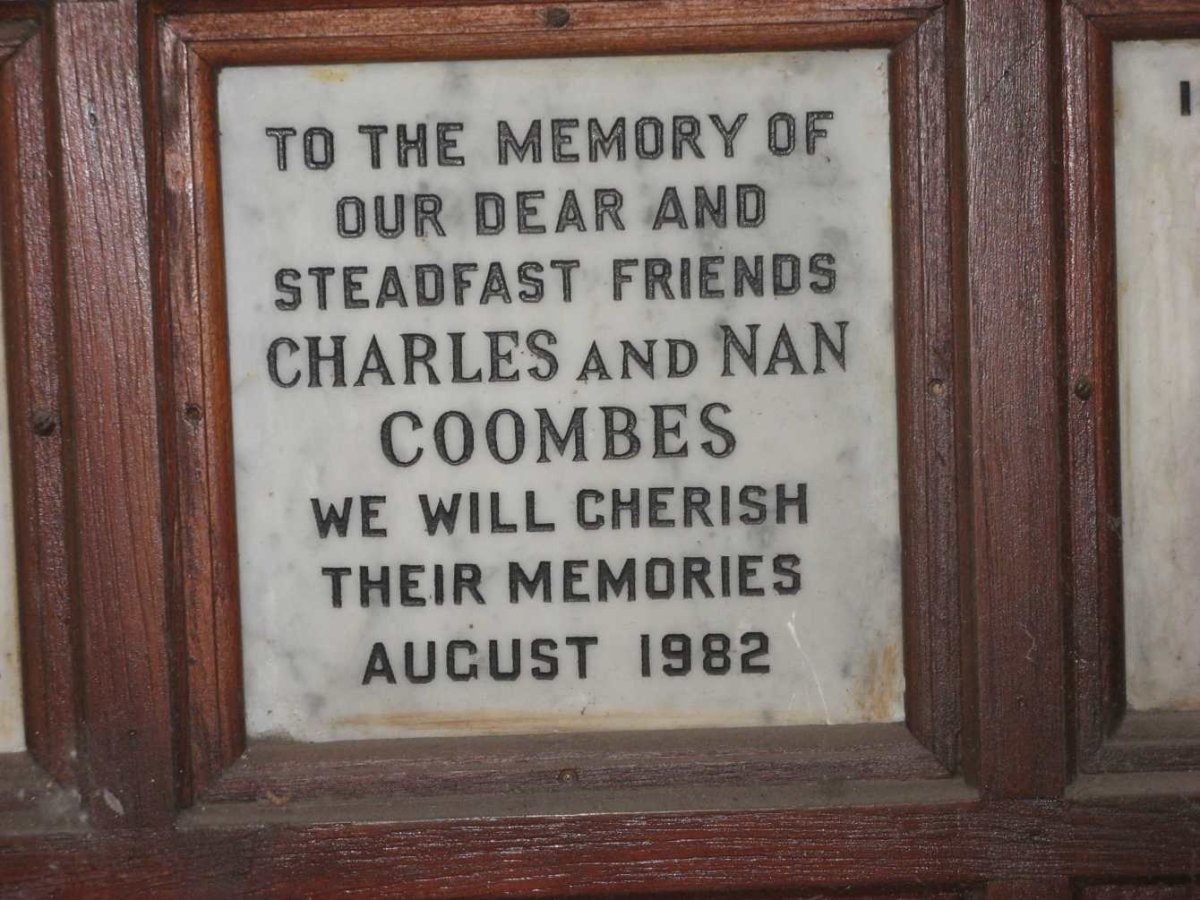 TO THE MEMORY OF
OUR DEAR AND
STEADFAST FRIENDS
CHARLES AND NAN
COOMBES
WE WILL CHERISH
THEIR MEMORIES
AUGUST 1982